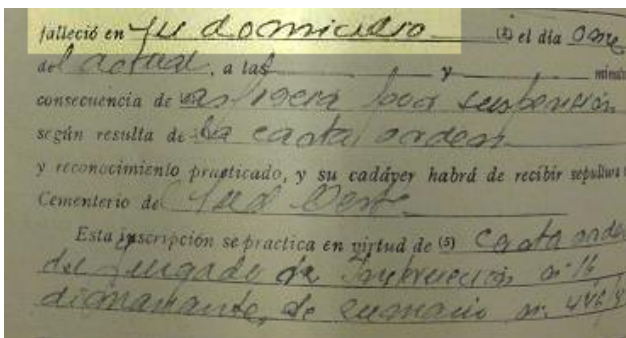 falleció en su domicilio (2) el día once
del actual, a las y minu
consecuencia de asfixia por suspensión
según resulta de la carta orden
y reconocimiento practicado, y su cadáver habrá de recibir sepultura
Cementerio de Sud Oeste
Esta inscripción se practica en virtud de (5) Carta orde
del Juzgado de Instrucción nº 16
dimanante de sumario nº 446